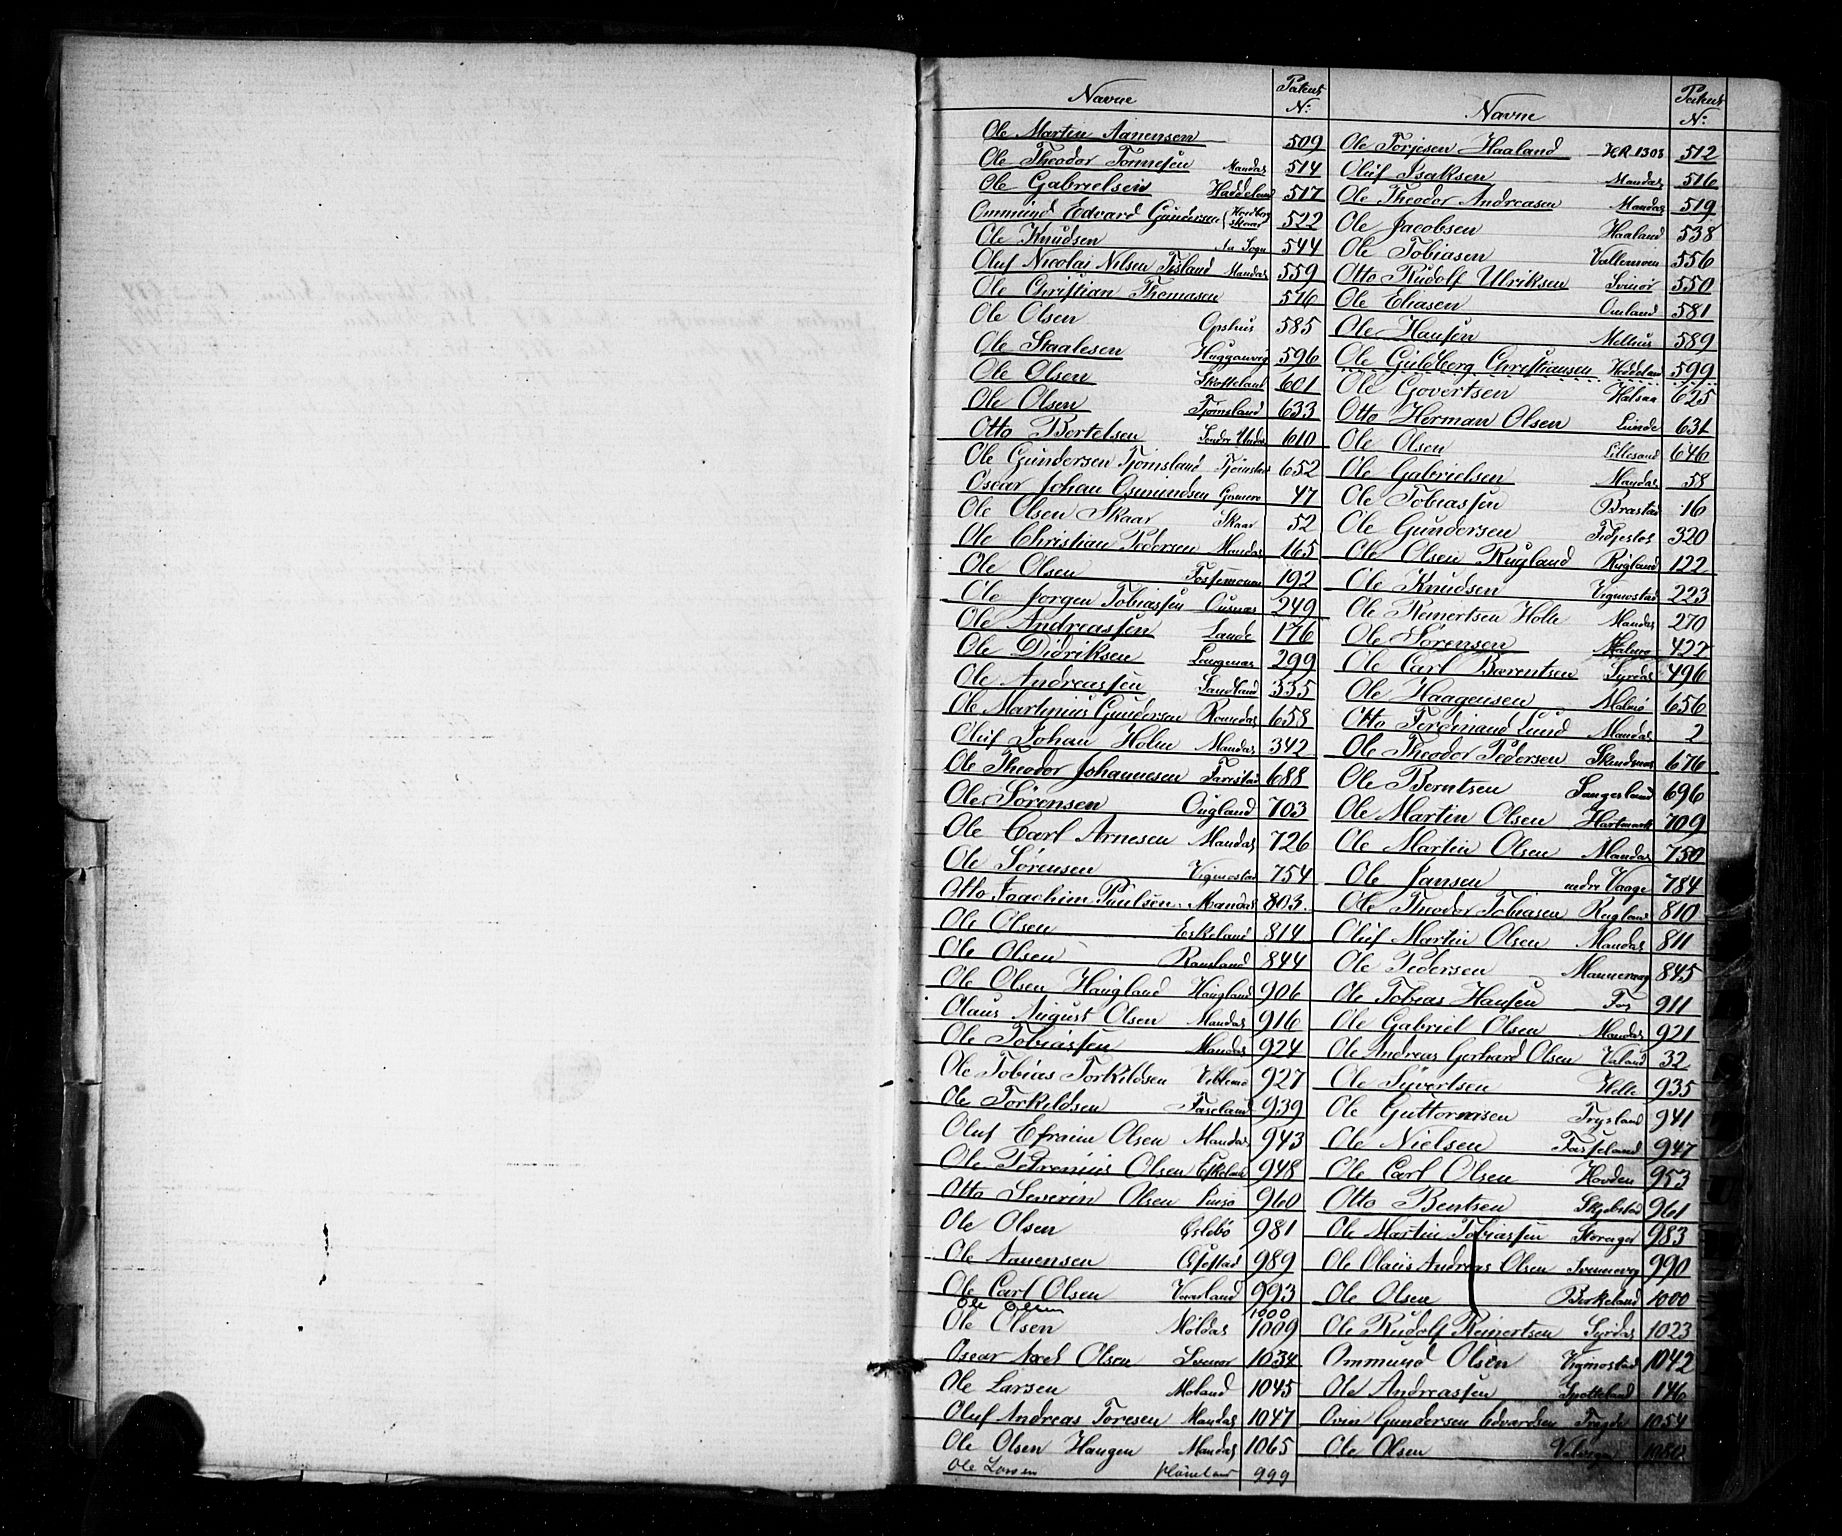 Navne Patent N: Navne Patent N:
Ole Martin Aanensen 509 Ole Torjesen Haaland HR 1308 512
Ole Theodor Tormesen Mandal 514 Oluf Isaksen Mandal 516
Ole Gabrielsen Haddeland 517 Ole Theodor Andreasen Mandal 519
Ommund Edvard Gundersen 522 Ole Jacobsen Haaland 538
Ole Knudsen Aa Sogn 544 Ole Tobiasen 556
Oluf Nicolai Nilsen Tisland Mandal 559 Otto Rudolf Ulriksen Svinør 550
Ole Christian Thomasen 576 Ole Eliasen Omland 581
Ole Olsen Opshus 585 Ole Hansen 589
Ole Staalesen 596 Ole Guldberg Christiansen 599
Ole Olsen Skofteland 601 Ole Govertsen Halsaa 625
Ole Olsen Tjomsland 633 Otto Herman Olsen Lunde 631
Otto Bertelsen Søndre Undal 610 Ole Olsen Lillesand 646
Ole Gundersen Tjomsland 652 Ole Gabrielsen Mandal 58
Oscar Johan Osmundsen 47 Ole Tobiassen Brastad 16
Ole Olsen Skaar Skaar 52 Ole Gundersen 320
Ole Christian Pedersen Mandal 165 Ole Olsen Rugland Rugland 122
Ole Olsen 192 Ole Knudsen Vigmostad 223
Ole Jørgen Tobiassen 249 Ole Reinertsen Holte Mandal 270
Ole Andreassen Lande 176 Ole Sørensen Malmø 422
Ole Didriksen 299 Ole Carl Bærentsen 496
Ole Andreassen Sandland 335 Ole Haagensen Malmø 656
Ole Martinius Gundersen 658 Otto Ferdinand Lund Mandal 2
Oluf Johan Holm Mandal 342 Ole Theodor Pedersen 676
Ole Theodor Johannesen Farestad 688 Ole Berntsen Sangesland 696
Ole Sørensen Ougland 703 Ole Martin Olsen Hartmark 709
Ole Carl Arnesen Mandal 726 Ole Martin Olsen Mandal 750
Ole Sørensen Vigmostad 754 Ole Jansen indre Vaage 784
Otto Joachim Paulsen Mandal 803 Ole Theodor Tobiasen Rugland 810
Ole Olsen Eskeland 814 Oluf Martin Olsen Mandal 811
Ole Olsen Ramsland 844 Ole Pedersen 845
Ole Olsen Haugland Haugland 906 Ole Tobias Hansen Fos 911
Olaus August Olsen Mandal 916 Ole Gabriel Olsen Mandal 921
Ole Tobiassen Mandal 924 Ole Andreas Gerhard Olsen Valand 32
Ole Tobias Torkildsen 927 Ole Syvertsen Holte 935
Ole Torkildsen Faseland 939 Ole Guttormsen Trysland 941
Oluf Efraim Olsen Mandal 943 Ole Nielsen Fasseland 947
Ole Petrenius Olsen Eskeland 948 Ole Carl Olsen Hovden 953
Otto Severin Olsen 960 Otto Bentsen 961
Ole Olsen Øslebø 981 Ole Martin Tobiassen 983
Ole Nanensen 989 Ole Olaus Andreas Olsen Svennevig 990
Ole Carl Olsen 993 Ole Olsen Birkeland 1000
Ole Olsen 1000
Ole Olsen Møldal 1009 Ole Rudolf Reinertsen 1023
Oscar Axel Olsen Svinør 1034 Ommund Olsen Vigmostad 1042
Ole Larsen Moland 1045 Ole Andreassen 146
Oluf Andreas Toresen Mandal 1047 Ovin Gundersen Edvardsen Tregde 1054
Ole Olsen Haugen Mandal 1065 Ole Olsen
Ole Larsen 999